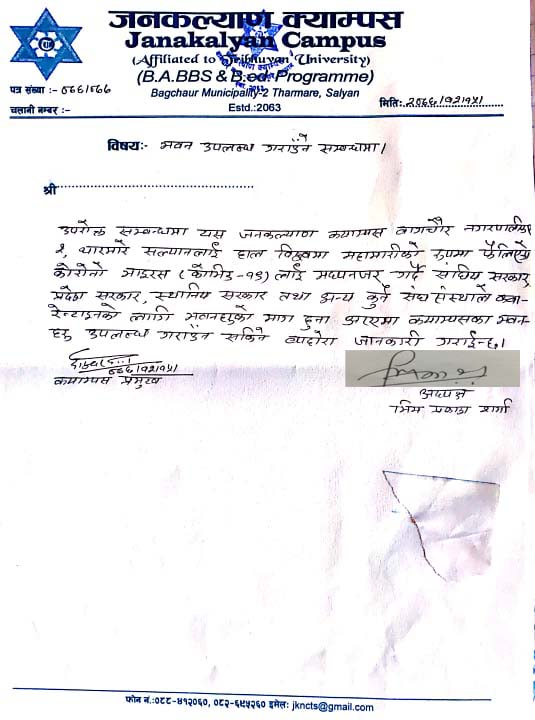 जनकल्याण क्याम्पस
Janakalyan Campus
(Affiliated to Tribhuvan University)
(B.A.BBS & B.ed Programme)
Bagchaur Municipality-2 Tharmare, Salyan
Estd.:2063
पत्र संख्या :- ०७६/०७७
चलानी नम्बर :-
मिति: २०७६/१२/१५।
विषय:- भवन उपलब्ध गराउने सम्बन्धमा।
श्री
उपरोक्त सम्बन्धमा यस जनकल्याण क्याम्पस बागचौर नगरपालिका
२, थारमारे सल्यानलाई हाल विश्वमा महामारीको रुपमा फैलिएको
कोरोनो भाइरस (कोभिड-१९) लाई मध्यनजर गर्दै संघिय सरकार,
प्रदेश सरकार, स्थानिय सरकार तथा अन्य कुनै संघ संस्थाले क्वा-
रेन्टाइनको लागि भवनहरुको माग हुन आएमा क्याम्पसका भवन-
हरु उपलब्ध गराउन सकिने व्यहोरा जानकारी गराईन्छ।
०७६/१२/१५।
क्याम्पस प्रमुख
अध्यक्ष
भिम प्रकाश शर्मा
फोन नं.:०८८-४१२०६०, ०८२-६९५२६० इमेल: jkncts@gmail.com